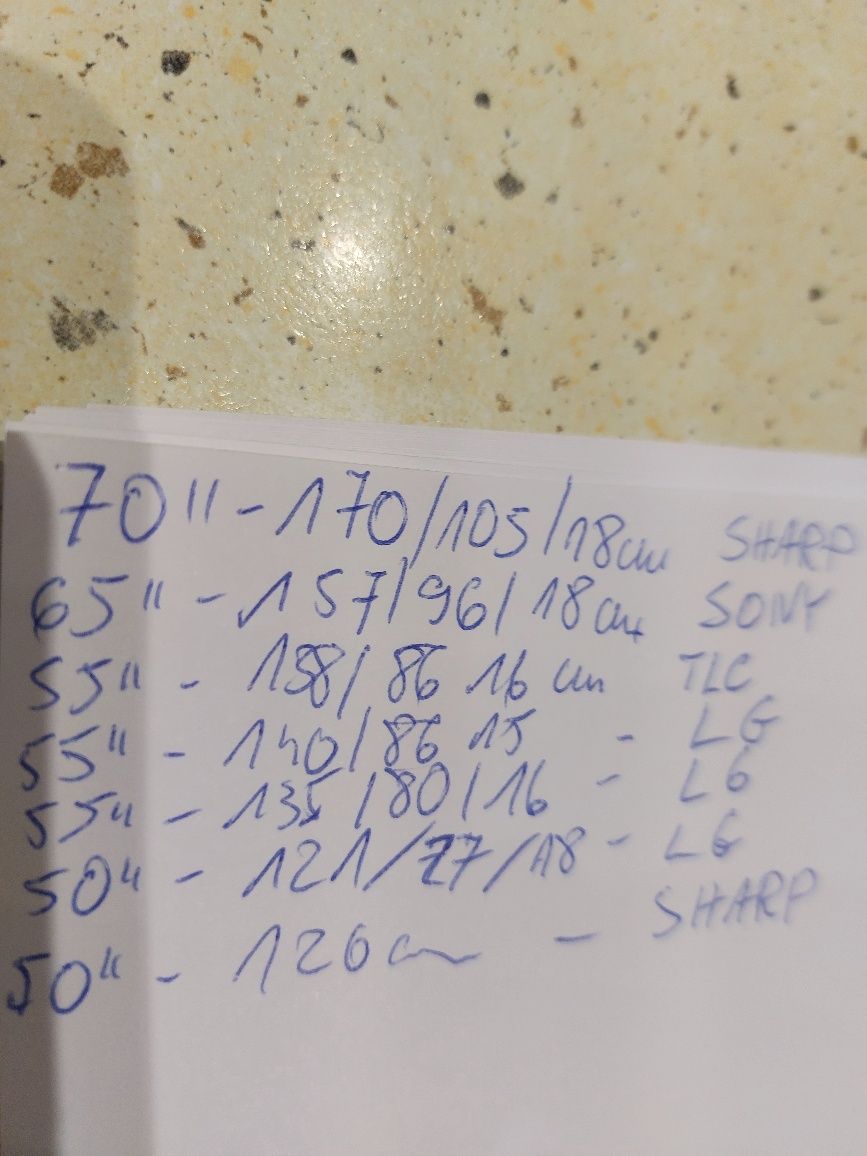 70" - 170/105/18cm SHARP
65" - 157/96/18cm SONY
55" - 138/86 16 cm TLC
55" - 140/86 15 - LG
55" - 135/80/16 - LG
50" - 121/77/18 - LG
50" - 120cm - SHARP